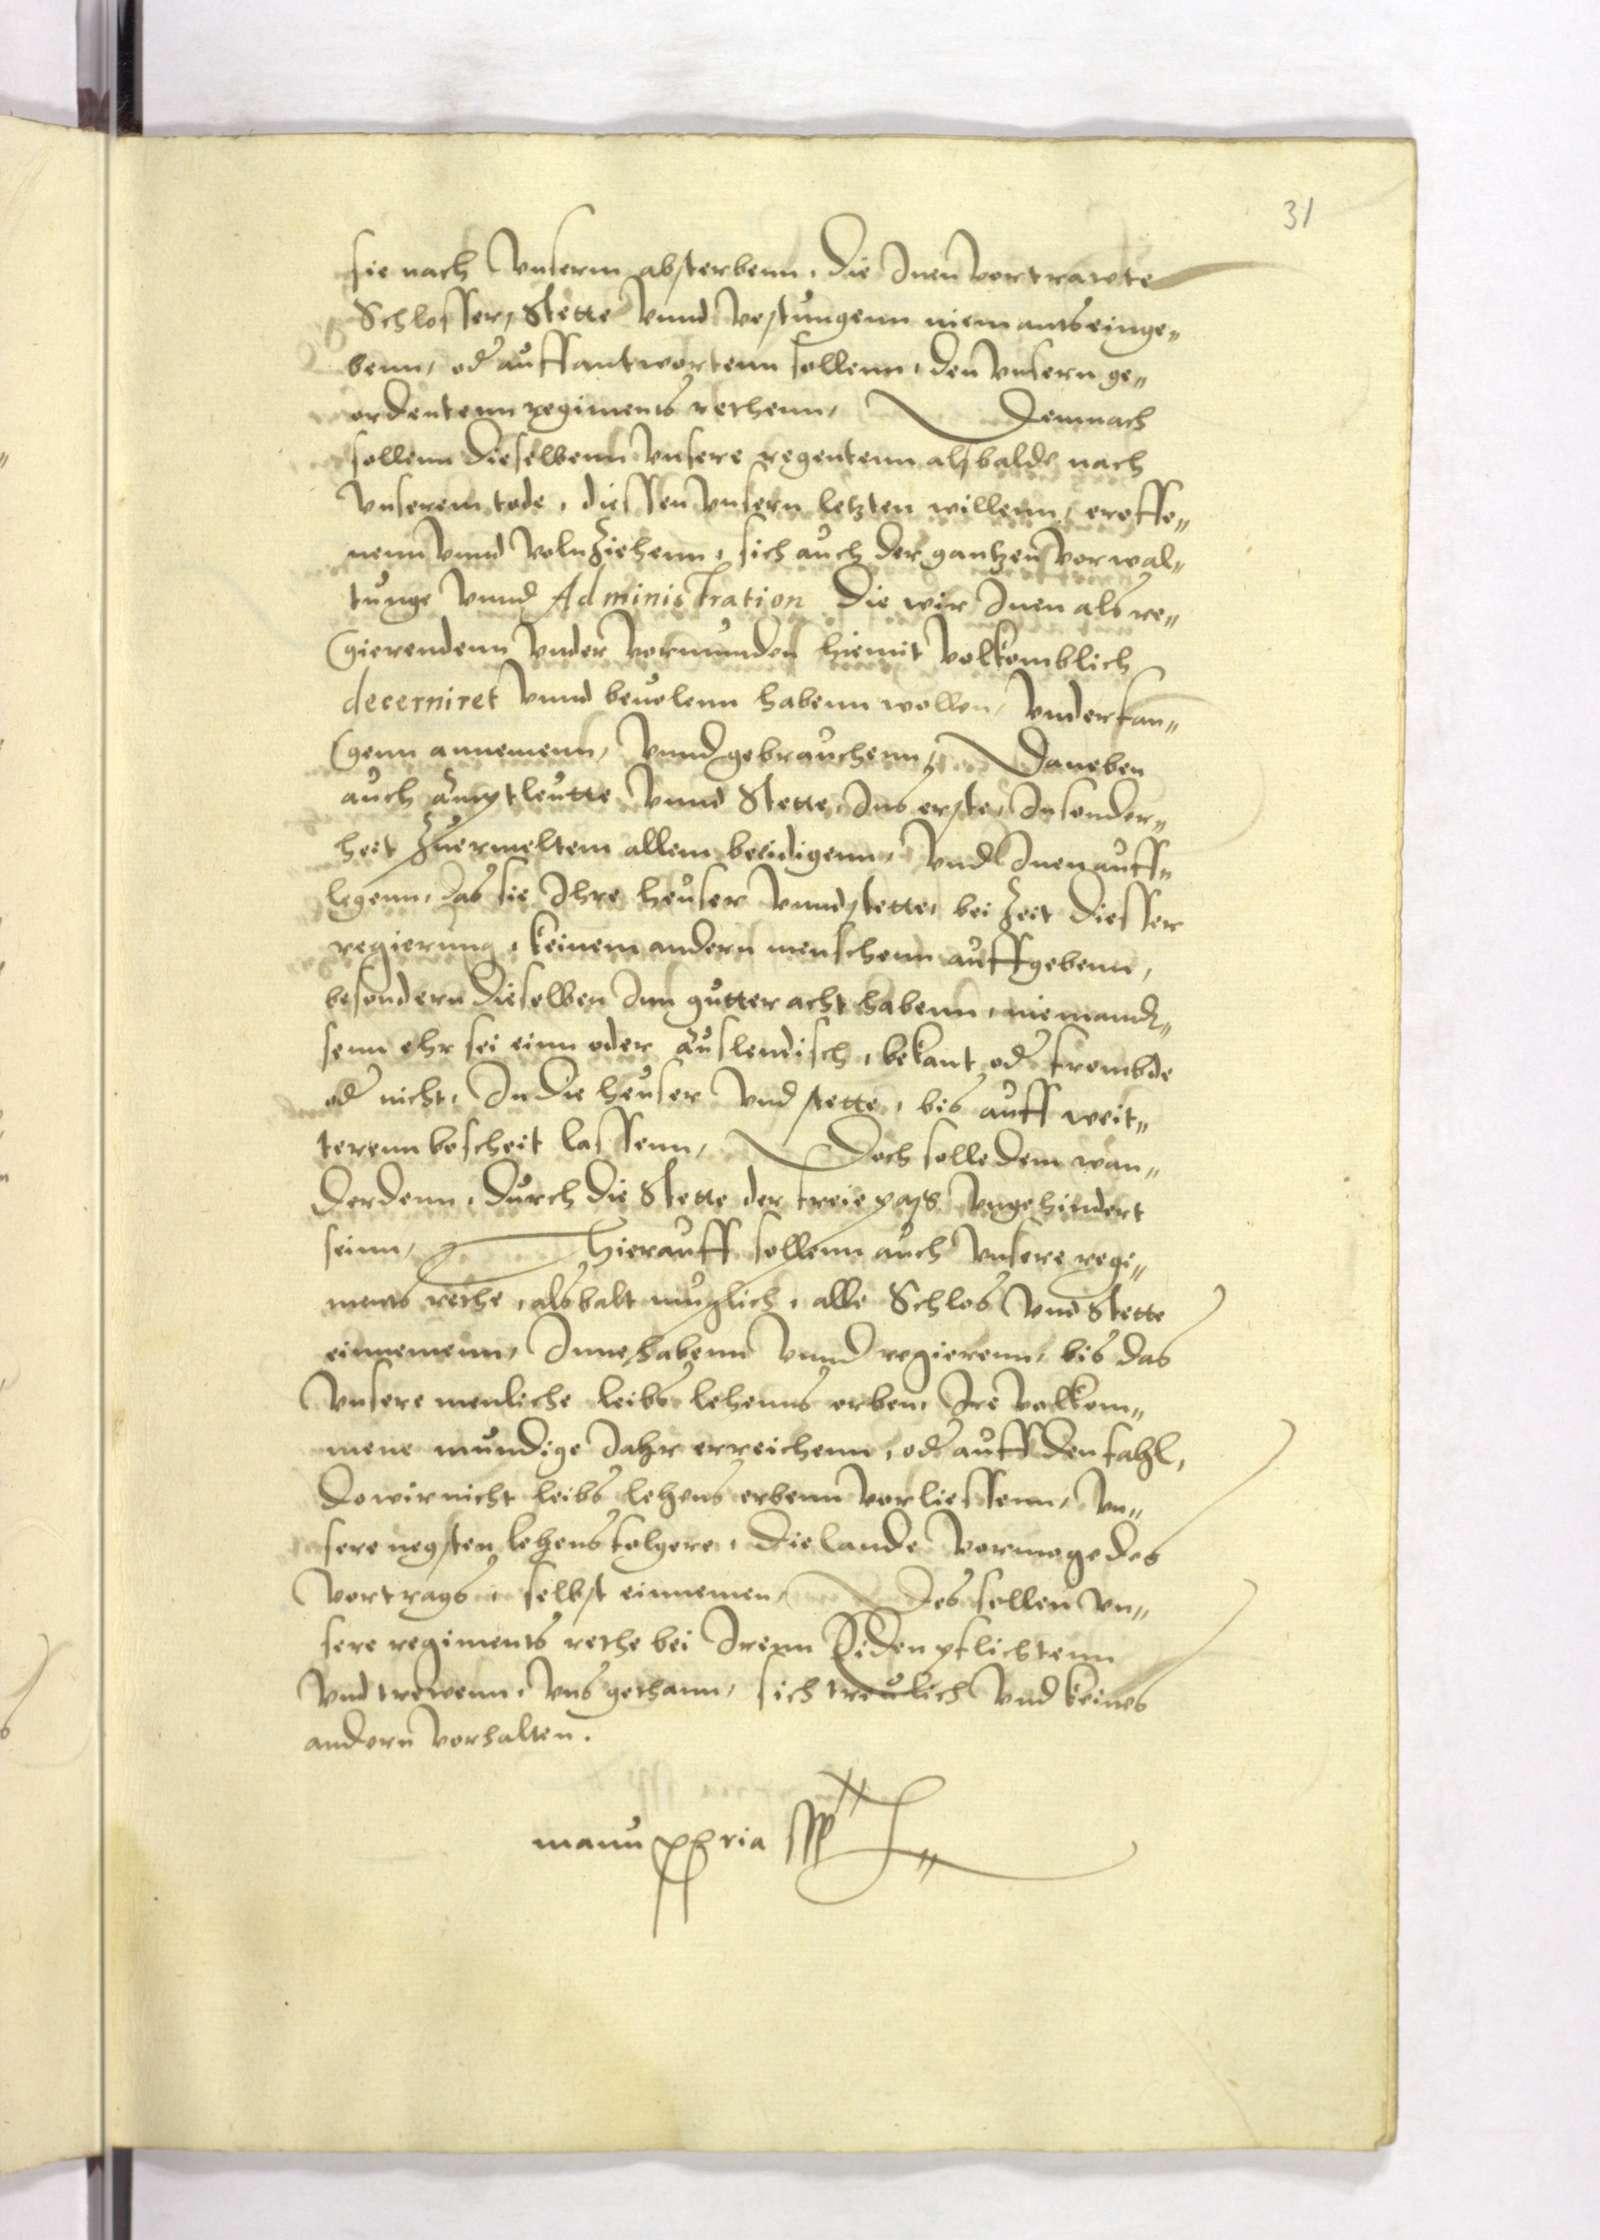 31
sie nach Vnserm absterbenn, die Inen vortrawte
Schlosser, Stette vnnd vestungenn niemants einge„
benn, od auffantwortenn sollenn, den vnsern ge„
ordentenn regiments rethenn, Demnach
sollenn dieselbenn vnsere regentenn alsbalde nach
vnserem tode, diessen vnsern letzten willenn, eroffe„
nenn vnnd volnziehenn, sich auch der gantzen vorwal„
tunge vnnd Administration die wir Inen als re„
gierendenn vnder vormunden hiemit volkomblich
decerniret vnnd beuolenn habenn wollen, vnderfan„
genn annemenn, vnnd gebrauchenn, Daneben
auch Amptleutte vnnd Stette, Ins erste, Insonder„
heit zuermeltem allem beeidigenn, vnd Inen auff„
legenn, das sie Ihre heuser vnnd stette, bei zeit diesser
regierung, keinem andern menschenn auffgebenn,
besondern dieselben Inn gutter acht habenn, niemand„
senn ehr sei einn oder Auslendisch, bekant od frembde
od nicht, In die heuser vnd stette, bis auff weit„
terenn bescheit lassenn, Doch solle dem wan„
derdenn, durch die Stette der freie pass vngehindert
seinn, Hierauff sollenn auch vnsere regi„
ments rethe, alsbalt muglich, alle Schlos vnd Stette
einnemenn, Innehabenn vnnd regierenn, bis das
vnsere menliche leibs lehenns erben, Ire volkom„
mene mundige Jahr erreichenn, od auff den fahl,
do wir nicht leibs lehens erbenn vorliessenn, vn„
sere negsten lehens folgere, die lande vormoge des
vortrags, selbst einnemen, Des sollen vn„
sere regiments rethe bei Irenn Eiden pflichtenn
vnd trewenn, vns gethann, sich treulich vnd keines
andern vorhalten.
manu ppria